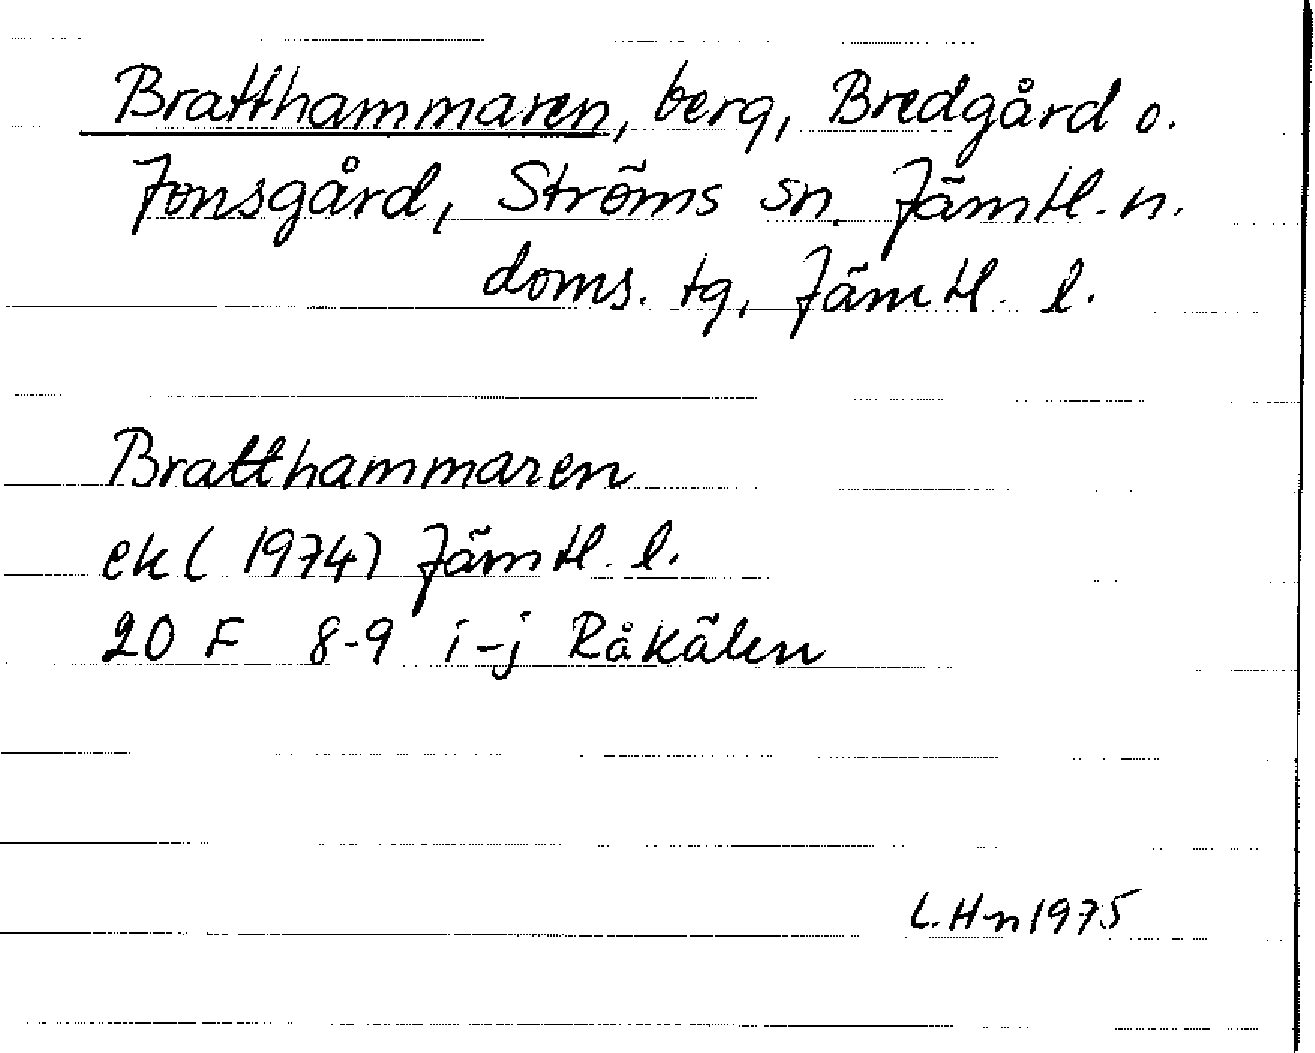 Bratthammaren, berg, Bredgård o.
Jonsgård, Ströms sn. Jämtl. n.
doms. tg, Jämtl. l.
Bratthammaren
ek (1974) Jämtl. l.
20 F 8-9 i-j Råkälen
L. Hn 1975